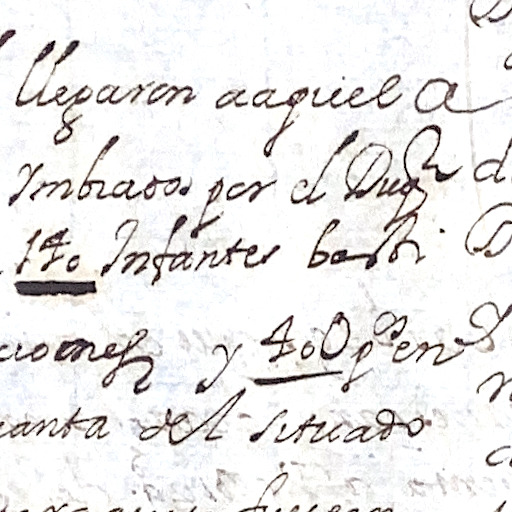 llegaron aaquel a
Imbiados por el Duqe
140 Infantes basti
ciones y 40U ps en
uanta del situado